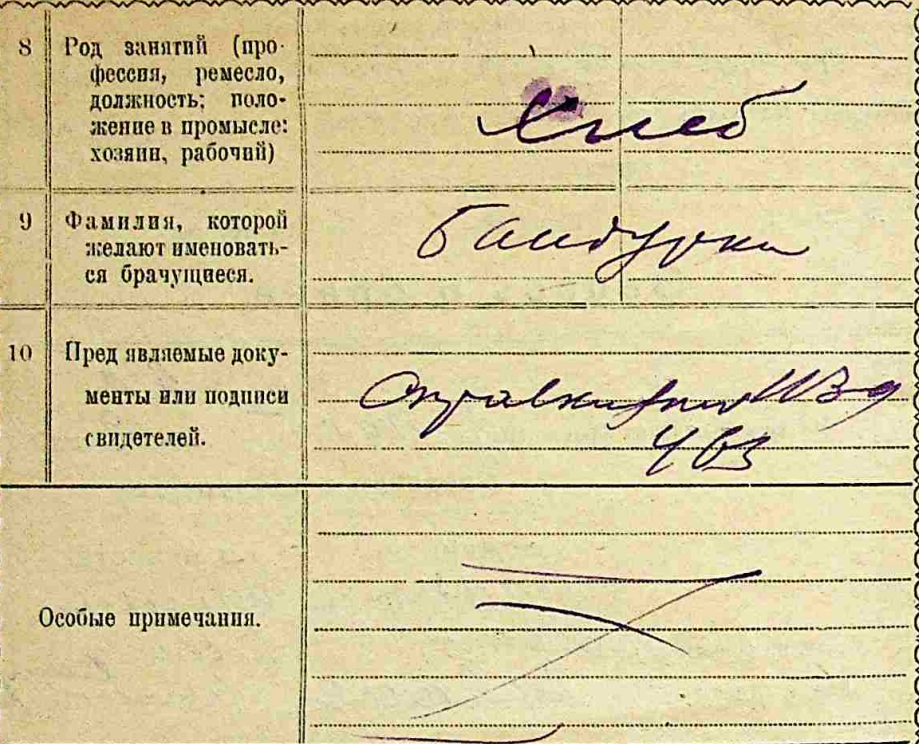 8 Род занятий (про-
фессия, ремесло,
должность; поло-
жение в промысле:
хозяин, рабочий)
Хлеб
9 Фамилия, которой
желают именовать-
ся брачущиеся.
Бандурки
10 Пред являемые доку-
менты или подписи
свидетелей.
Справки
Особые примечания.